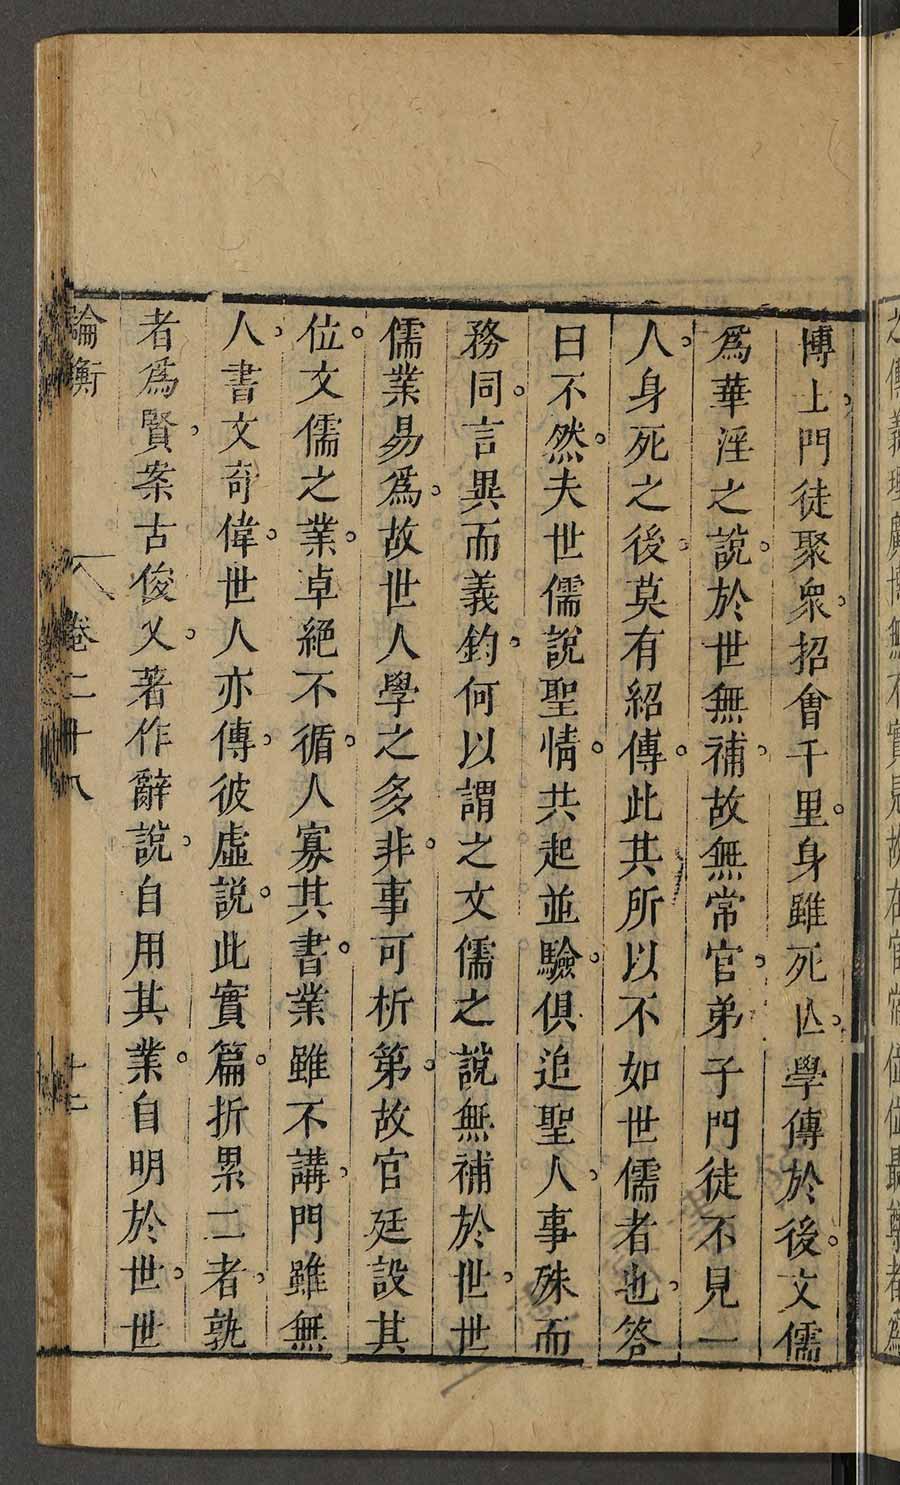 博士門徒聚衆。招會千里。身雖死亾。學傳於後。文儒
爲華淫之說。於世無補。故無常官。弟子門徒不見一
人。身死之後。莫有紹傳。此其所以不如世儒者也。答
曰不然。夫世儒說聖情。共起並驗。俱追聖人。事殊而
務同。言異而義鈞。何以謂之文儒之說無補於世。世
儒業易爲。故世人學之多。非事可析第。故官廷設其
位。文儒之業。卓絕不循。人寡其書。業雖不講。門雖無
人。書文奇偉。世人亦傳。彼虛說。此實篇。折累二者。孰
者爲賢。案古俊乂。著作辭說。自用其業。自明於世。世
論衡 卷二十八 十二